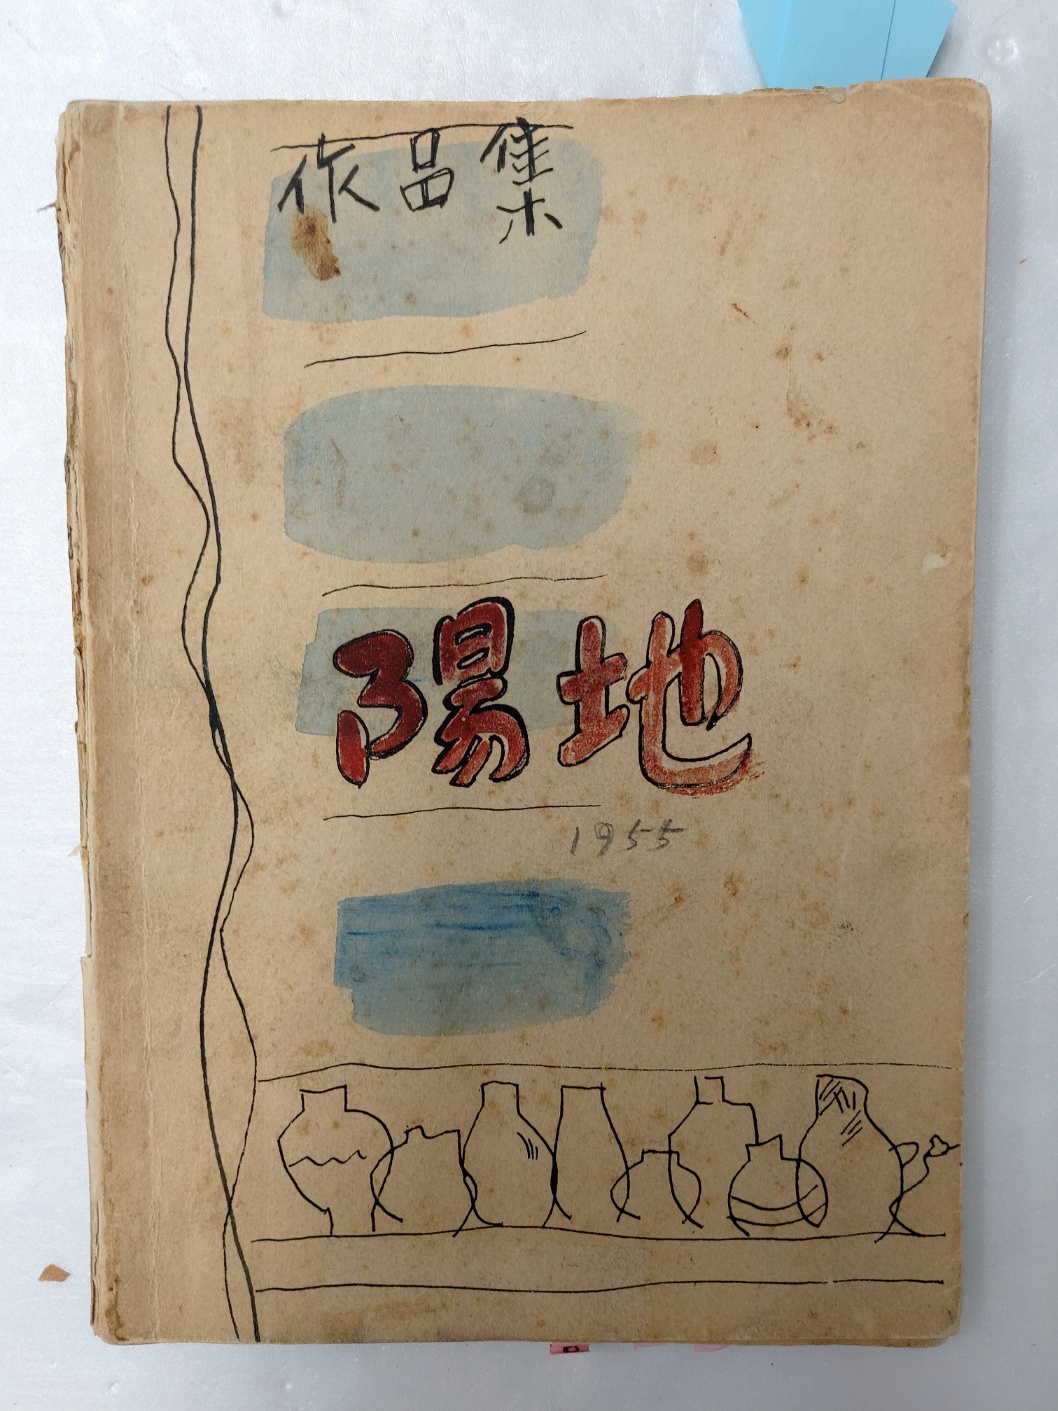 作品集
陽地
1955